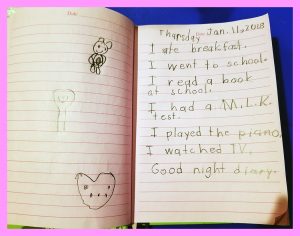 Date
Thursday Jan. 11, 2018
I ate breakfast.
I went to school.
I read a book
at school.
I had a M.L.K
test.
I played the piano.
I watched TV.
Good night diary.